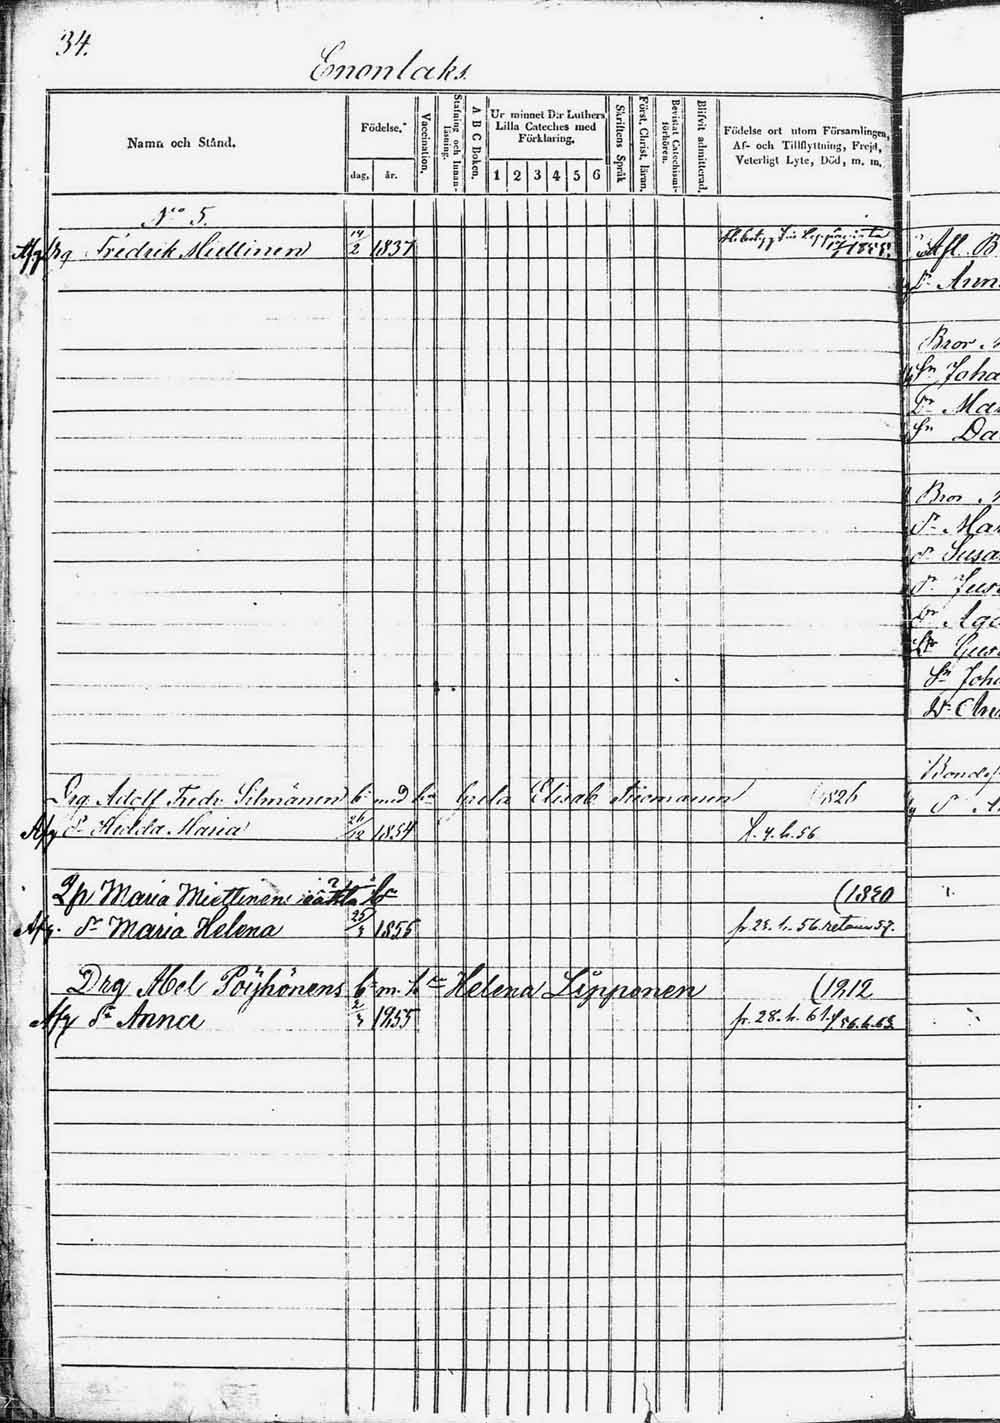 34.
Enonlaks.
Namn och Stånd.
Födelse.
dag, år.
Vaccination.
Stafning och Innanläsning.
A B C Boken.
Ur minnet D:r Luthers Lilla Cateches med Förklaring.
1 2 3 4 5 6
Skriftens Språk
Först. Christ. läran.
Bevistat Catechismiförhören.
Blifvit admitterad.
Födelse ort utom Församlingen, Af- och Tillflyttning, Frejd, Veterligt Lyte, Död, m. m.
N:o 5.
Afg Drg Fredrik Miettinen 14/2 1837 1855.
Drg. Adolf Fredr. Silmänen b. med h. Greta Elisab. Tiismanen 1826
Afg Dr Hedda Maria 26/12 1854 f. 4. h. 56
Maria Miettinens (1820
Afg. Dr Maria Helena 25/3 1855 fr. 23. h. 56. retour 57.
Drg Abel Pöyhönens b. m. h. Helena Lipponen (1812
Afg Dr Anna 2/3 1855 fr. 28. h. 61.
Afl. B
Dr Ann
Bror
Sn Joha
Dr Mar
Sn Da
Bror
Dr Mar
Dr Susa
Dr
Dr Aga
Gus
Sn Joh
Bond